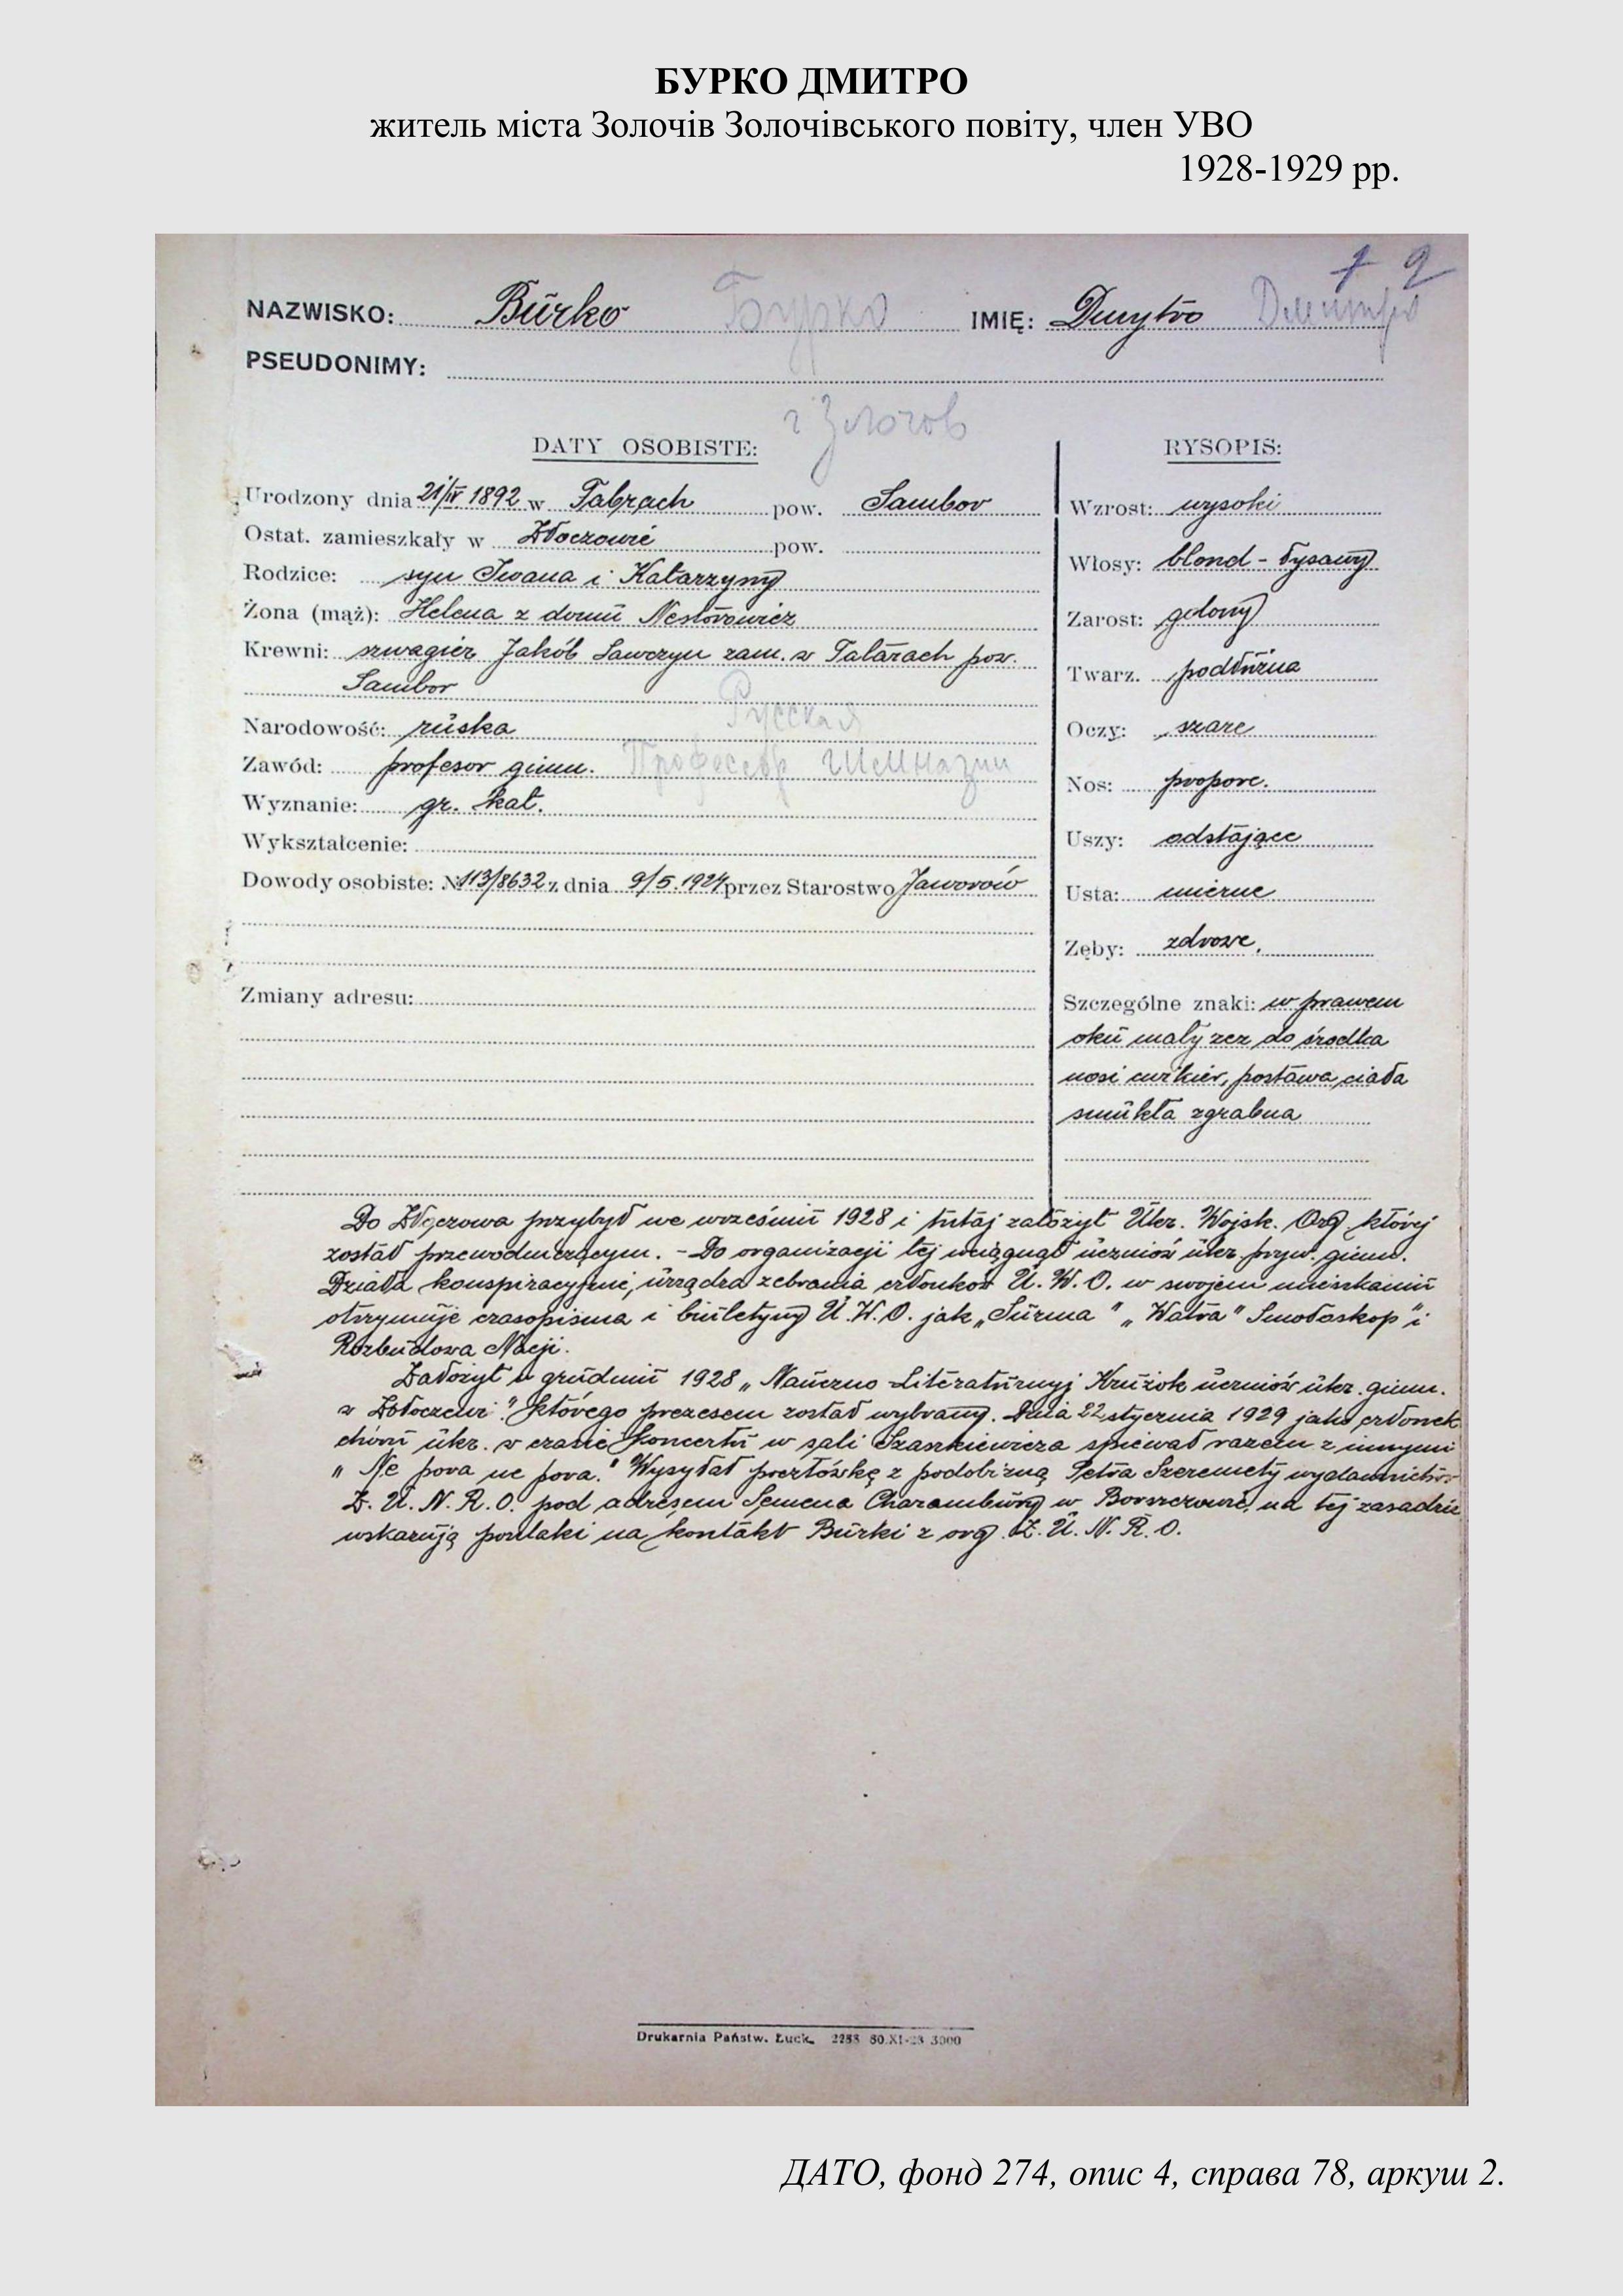 БУРКО ДМИТРО
житель міста Золочів Золочівського повіту, член УВО
1928-1929 рр.
2
NAZWISKO: Burko Бурко IMIĘ: Dmytro Дмитро
PSEUDONIMY:
г Злочов
DATY OSOBISTE:
Urodzony dnia 21/IV 1892 w pow. Sambor
Ostat. zamieszkały w Złoczowie pow.
Rodzice: syn Iwana i Katarzyny
Żona (mąż): Helena z domu Nestorowicz
Krewni: szwagier Jakób Ławczyn zam. w Tatarach pow.
Sambor
Narodowość: ruska Русская
Zawód: profesor gimn. Профессор гимназии
Wyznanie: gr. kat.
Wykształcenie:
Dowody osobiste: № 113/8632 z dnia 9/5.1924 przez Starostwo Jaworów
Zmiany adresu:
RYSOPIS:
Wzrost: wysoki
Włosy: blond - łysawy
Zarost: golony
Twarz. podłużna
Oczy: szare
Nos: proporc.
Uszy: odstające
Usta: mierne
Zęby: zdrowe.
Szczególne znaki: w prawem
oku mały zez do środka
nosi cwikier, postawa ciała
smukła zgrabna
Do Złoczowa przybył we wrześniu 1928 i tutaj założył Ukr. Wojsk. Org. której
został przewodniczącym. - Do organizacji tej wciągnął uczniów ukr. pryw. gimn.
Działa konspiracyjnie, urządza zebrania członków U. W. O. w swojem mieszkaniu
otrzymuje czasopisma i biuletyny U.W.O. jak „Surma" „Watra" Smołoskop" i
Rozbudowa Nacji.
Założył w grudniu 1928 „Nauczno-Literaturnyj Krużok uczniów ukr. gimn.
w Zołoczewi." którego prezesem został wybrany. Dnia 22 stycznia 1929 jako członek
chóru ukr. w czasie koncertu w sali Szaszkiewicza śpiewał razem z innymi
„Ne pora ne pora." Wysyłał pocztówkę z podobizną Petra Szeremety wydawnictwa
Z. U. N. R. O. pod adresem Semena Charambury w Borszczowie, na tej zasadzie
wskazują poszlaki na kontakt Burki z org. Z. U. N. R. O.
Drukarnia Państw. Łuck.
ДАТО, фонд 274, опис 4, справа 78, аркуш 2.